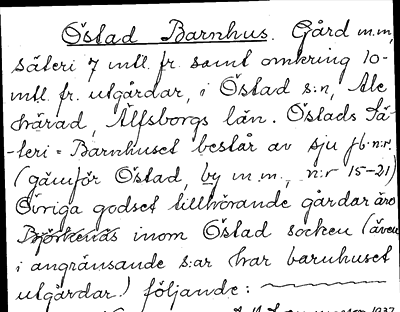 Östad Barnhus. Gård m.m,
säteri 7 mtl. fr. samt omkring 10-
mtl. fr. utgårdar, i Östad s:n, Ale
härad, Älfsborgs län. Östads Sä-
-teri = Barnhuset består av sju jb:n:r.
(jämför Östad, by m.m., n:r 15-21)
Övriga godset tillhörande gårdar äro
Björkenäs inom Östad socken (även
i angränsande s:ar har barnhuset
utgårdar) följande:
1937